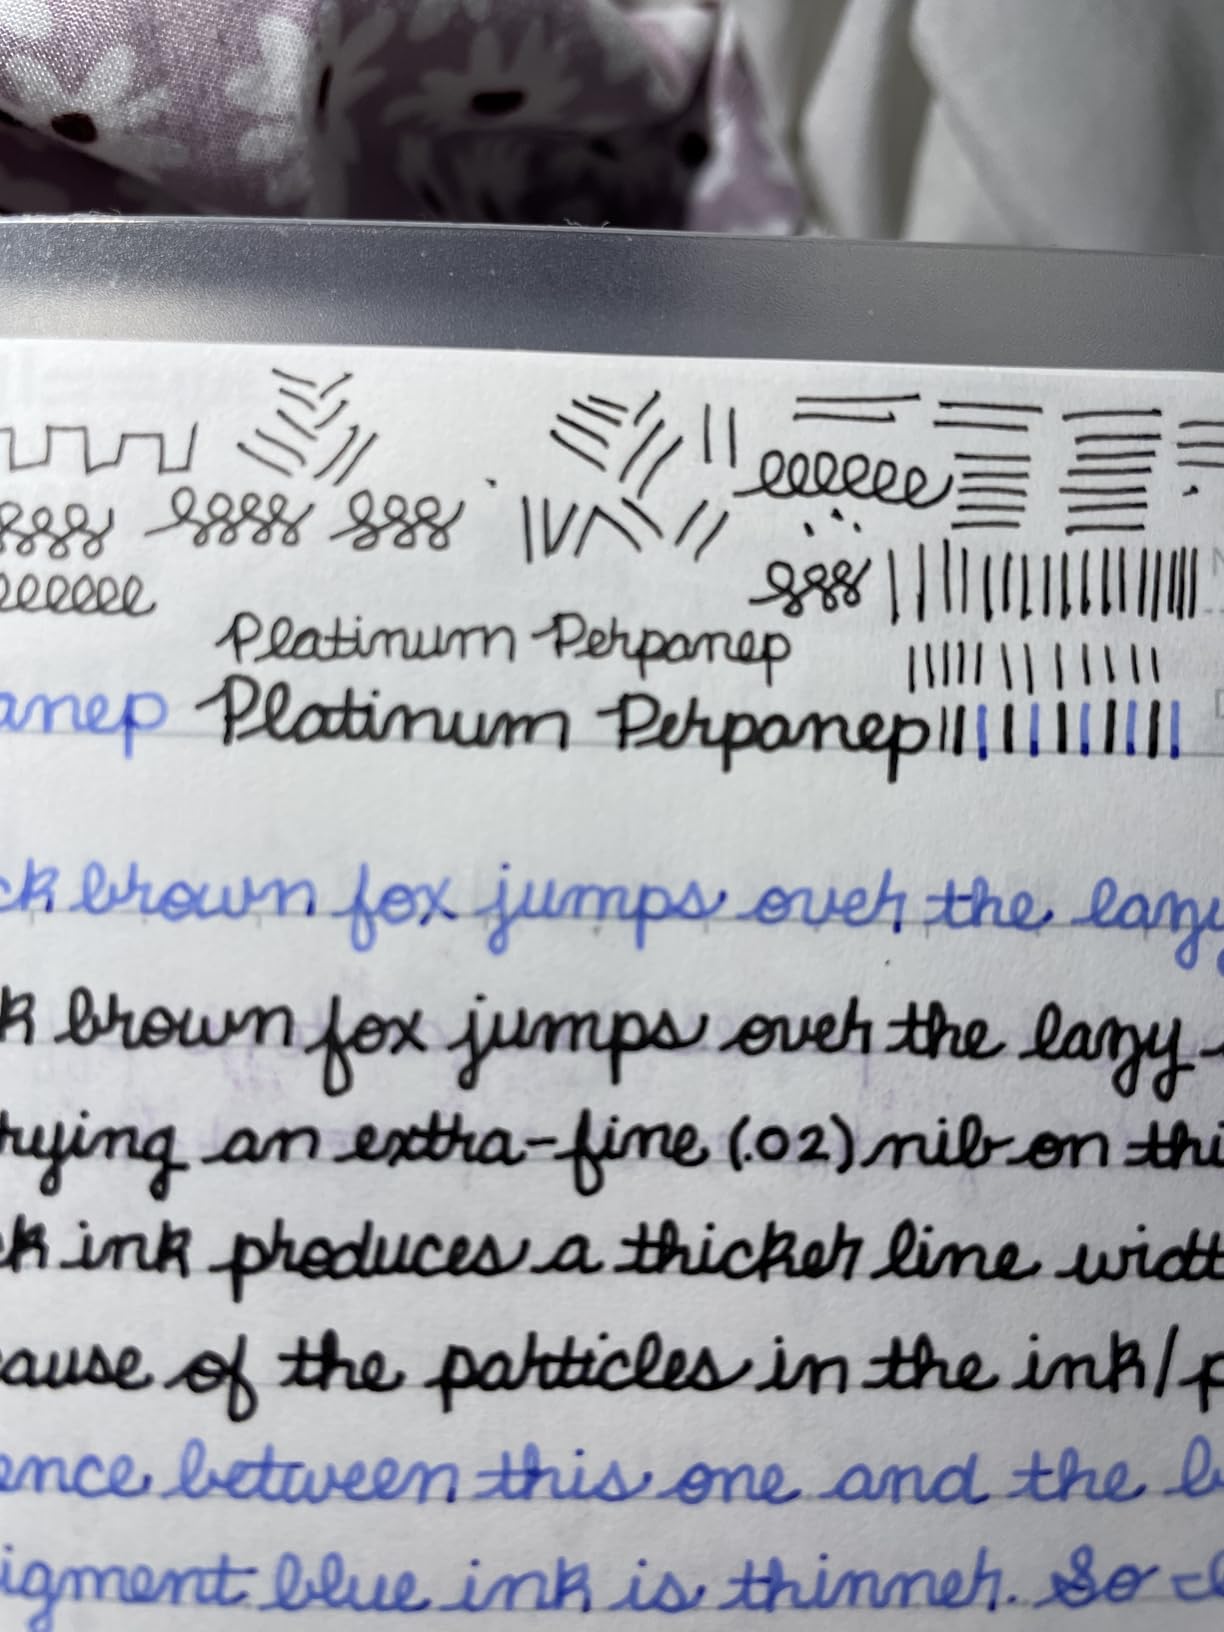 Platinum Perpanep
anep Platinum Perpanep
ck brown fox jumps over the lazy
k brown fox jumps over the lazy
trying an extra-fine (.02) nib on thi
ck ink produces a thicker line widt
cause of the particles in the ink/p
ence between this one and the b
igment blue ink is thinner. So